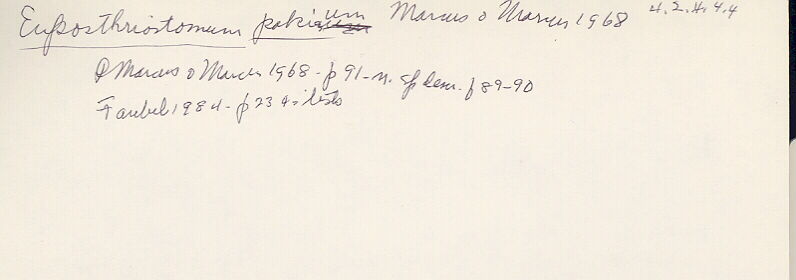 Euposthriostomum pakium Marcus & Marcus 1968 4.2.4.4.4
Marcus & Marcus 1968 - p 91 - n. sp desc. p 89-90
Faubel 1984 - p 234 lists